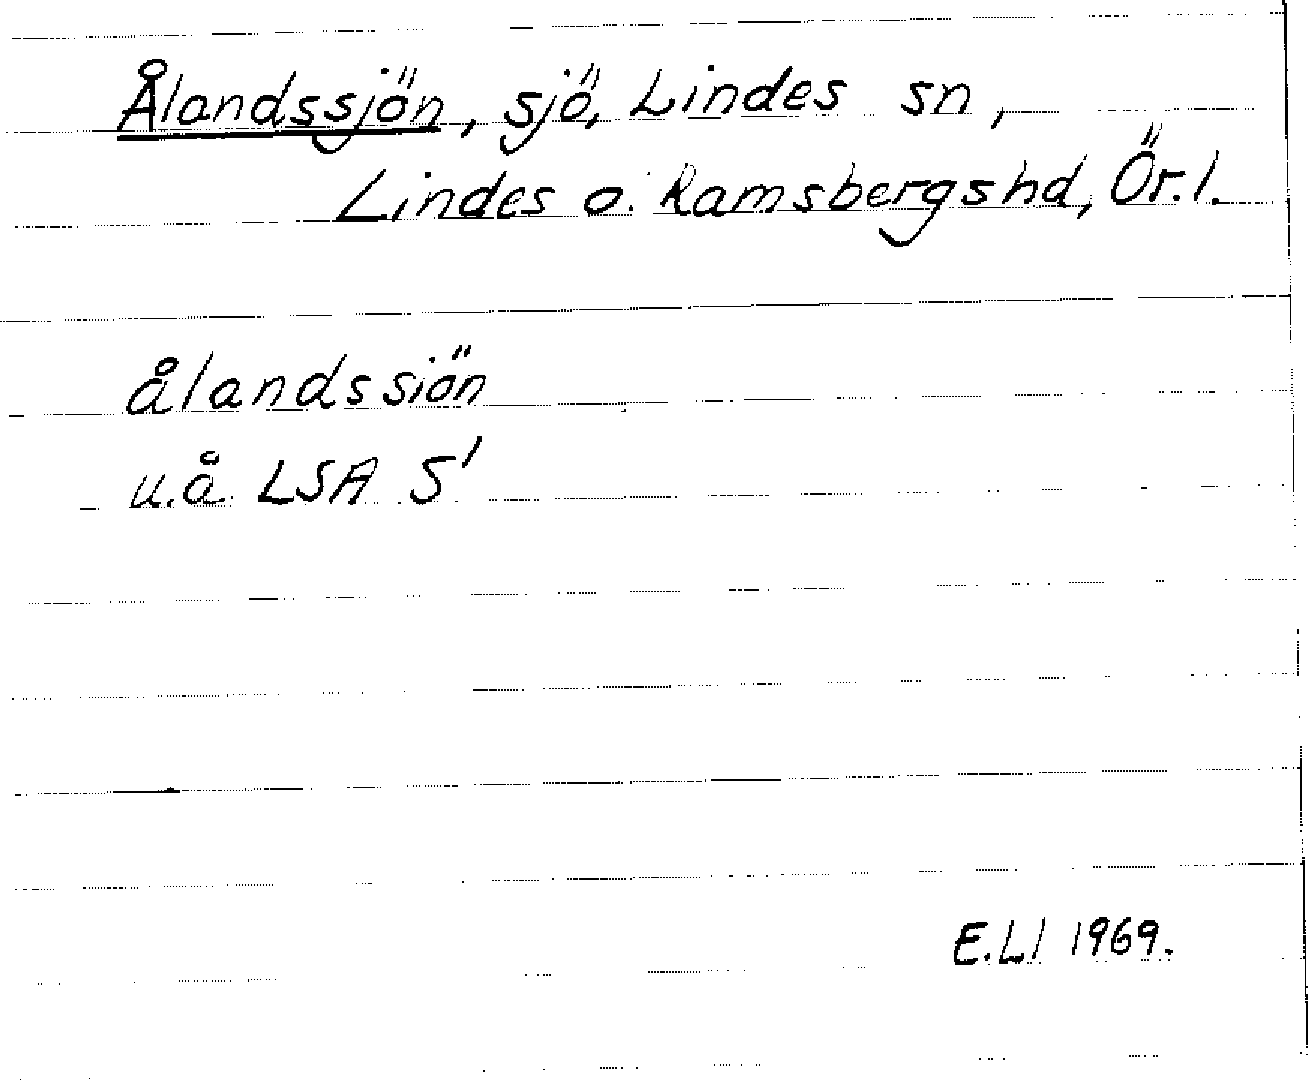 Ålandssjön, sjö, Lindes sn,
Lindes o. Ramsbergshd, Ör. l.
ålandssiön
u.å. LSA S'
E.Ll 1969.